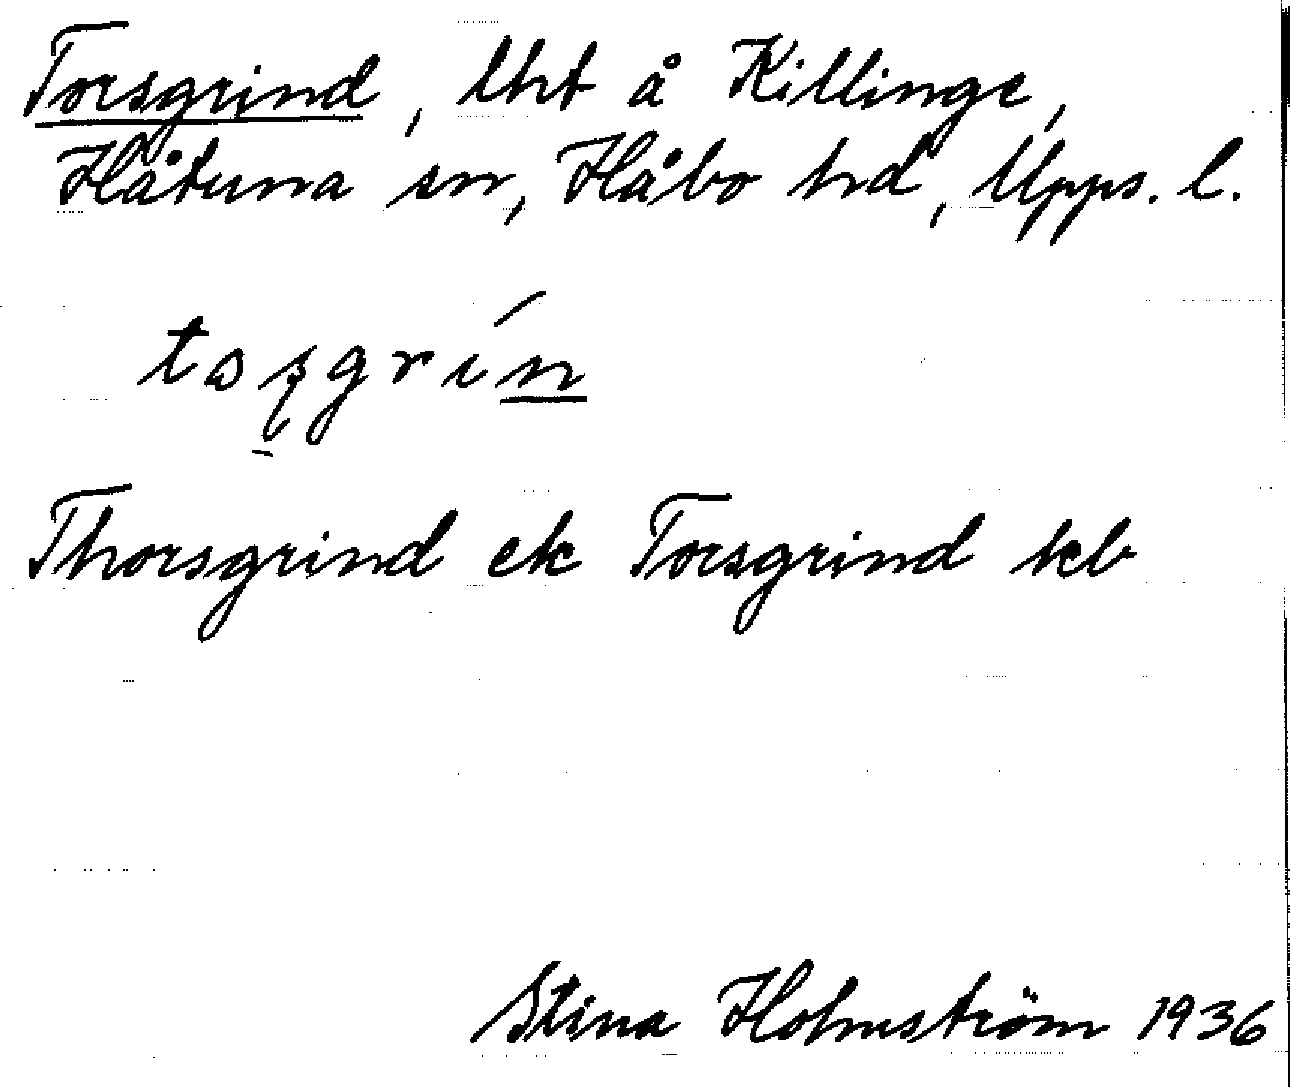 Torsgrind, lht å Killinge,
Håtuna sn, Håbo hd, Upps. l.
Thorsgrind ek Torsgrind kb
Stina Holmström 1936